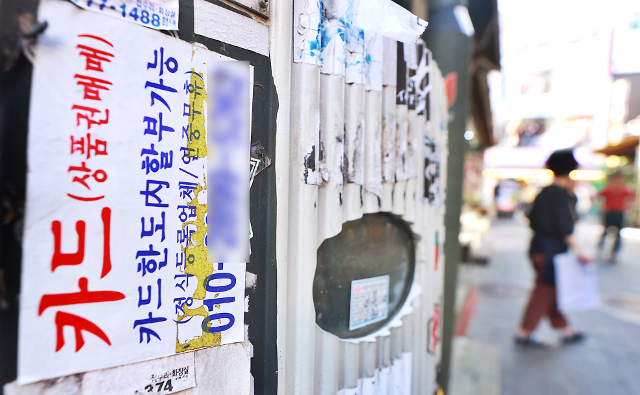 77-1488
카드(상품권매매)
카드한도內할부가능
(정식등록업체/연중무휴)
010-
374